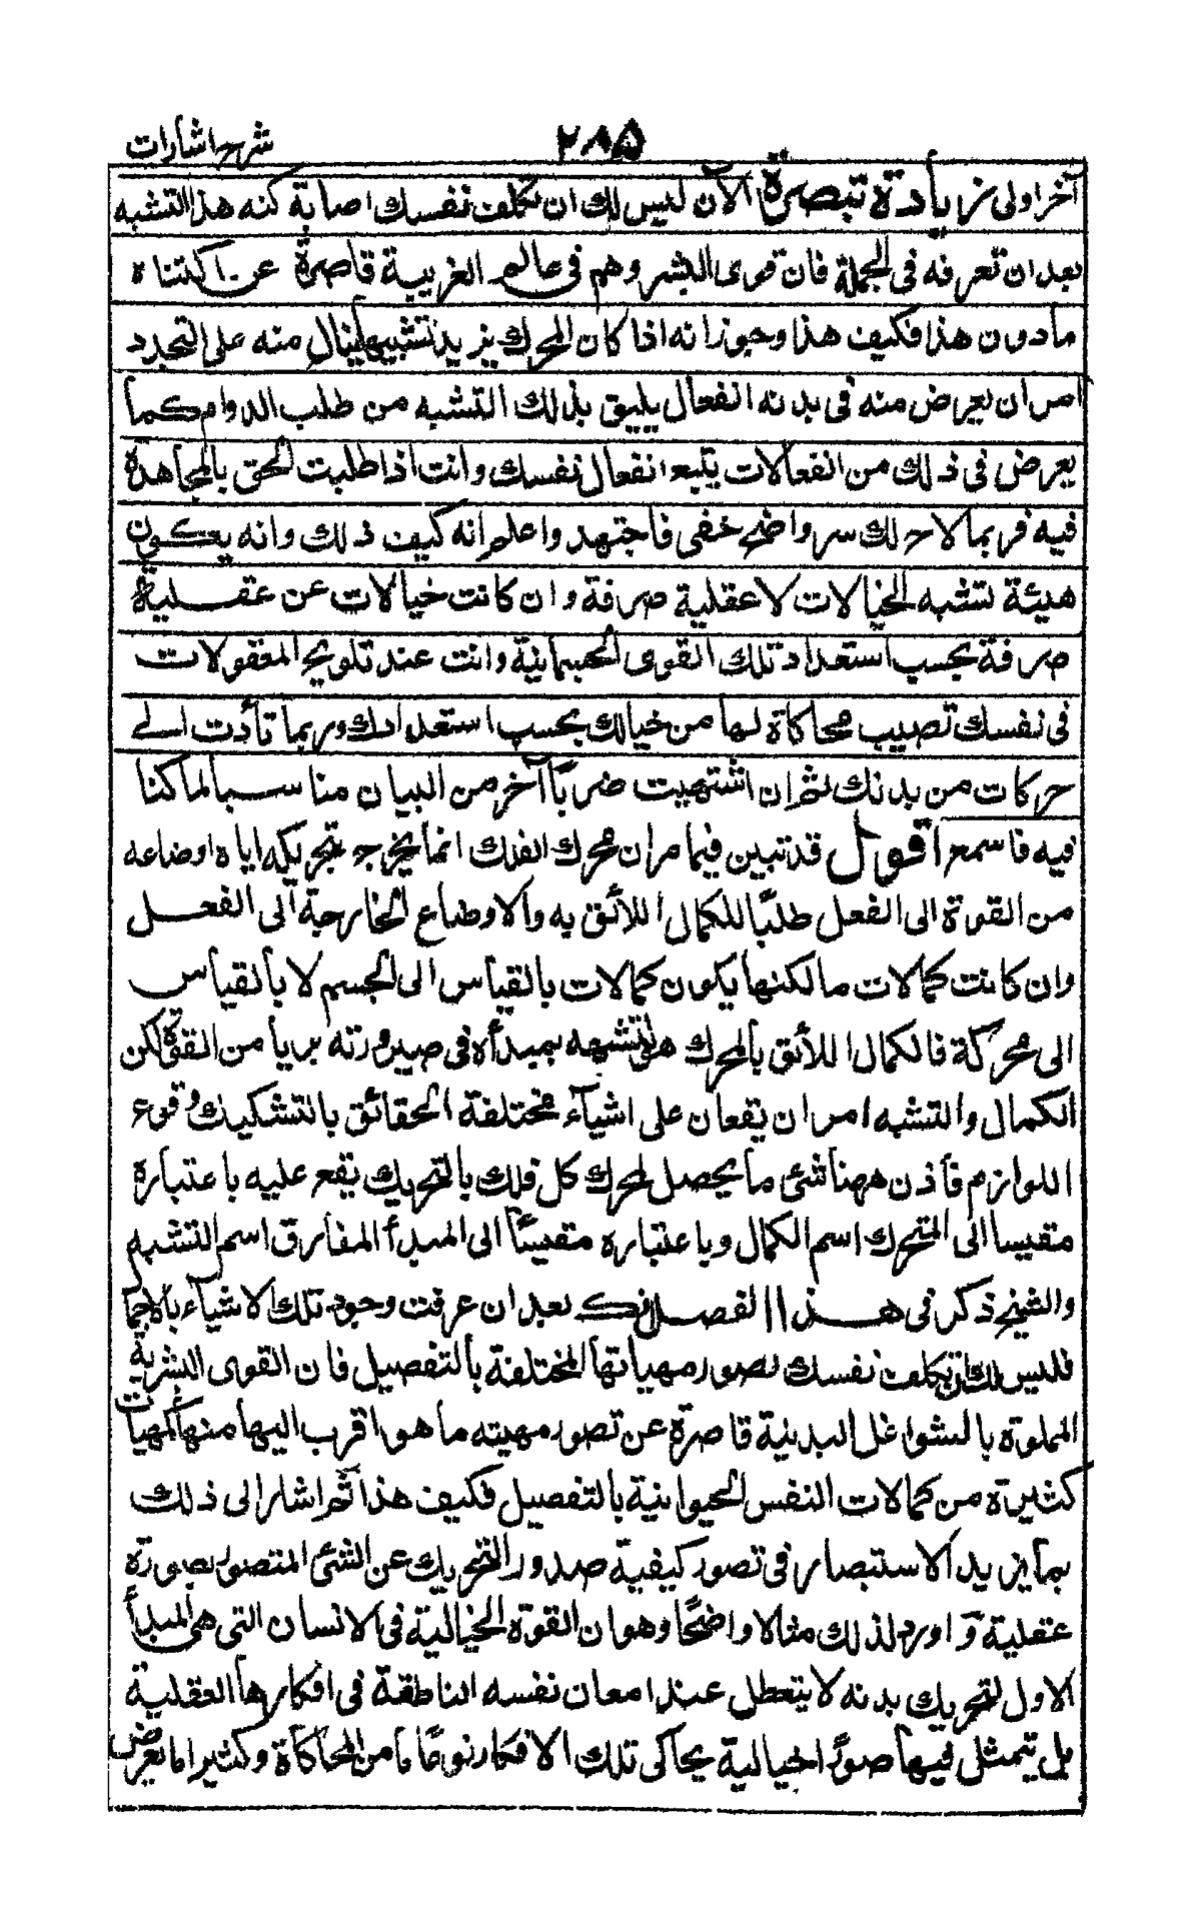 شرح اشارات
٢٨٥
آخر اولى زيادة تبصرة الآن ليس لك ان تكلف نفسك اصابة كنه هذا التشبه
بعد ان تعرفه فى الجملة فان قوى البشر وهم فى عالم الغربية قاصرة عن اكتناه
مادون هذا فكيف هذا وجوز انه اذا كان المحرك يزيد تشبيها لينال منه على التجدد
امر ان يعرض منه فى بدنه انفعال يليق بذلك التشبه من طلب الدوام كما
يعرض فى ذلك من انفعالات يتبع انفعال نفسك وانت اذا طلبت الحق بالمجاهدة
فيه فربما لاح لك سر واضح خفى فاجتهد واعلم انه كيف ذلك وانه يكون
هيئة لتشبه الخيالات لا عقلية صرفة وان كانت خيالات عن عقلية
صرفة بحسب استعداد تلك القوى الجسمانية وانت عند تلويح المعقولات
فى نفسك تصيب محاكاة لها من خيالك بحسب استعدادك وربما تأدت الى
حركات من بدنك ثم ان اشتهيت ضربا آخر من البيان مناسبا لما كنا
فيه فاسمع اقول قد تبين فيما مر ان محرك الفلك انما يخرج بتحريكه اياه اوضاعه
من القوة الى الفعل طلبًا للكمال اللائق به والاوضاع الخارجة الى الفعل
وان كانت كمالات ما لكنها يكون كمالات بالقياس الى الجسم لا بالقياس
الى محركة فالكمال اللائق بالمحرك هو تشبهه بمبدأه فى صيرورته بريا من القوة لكن
الكمال والتشبه امر ان يقعان على اشياء مختلفة الحقائق بالتشكيك وقوع
اللوازم فاذن ههنا شئ ما يحصل لمحرك كل فلك بالتحريك يقع عليه باعتباره
مقيسا الى المتحرك اسم الكمال وباعتباره مقيسًا الى المبدأ المفارق اسم التشبه
والشيخ ذكر فى هذا الفصل انك بعد ان عرفت وجود تلك الاشياء بالاجما
فليس لك ان تكلف نفسك تصور مهياتها المختلفة بالتفصيل فان القوى البشرية
المملوة بالشواغل البدنية قاصرة عن تصور مهيته ما هو اقرب اليها منها كمهيات
كثيرة من كمالات النفس الحيوانية بالتفصيل فكيف هذا ثم اشار الى ذلك
بما يزيد الاستبصار فى تصور كيفية صدور التحريك عن الشئ المتصور بصورة
عقلية و اورد لذلك مثالا واضحًا وهو ان القوة الخيالية فى الانسان التى هى المبدأ
الاول لتحريك بدنه لا يتعطل عند امعان نفسه الناطقة فى افكارها العقلية
بل يتمثل فيها صورًا خيالية يحاكى تلك الافكار نوعًا ما من المحاكاة وكثيرا ما يعرض